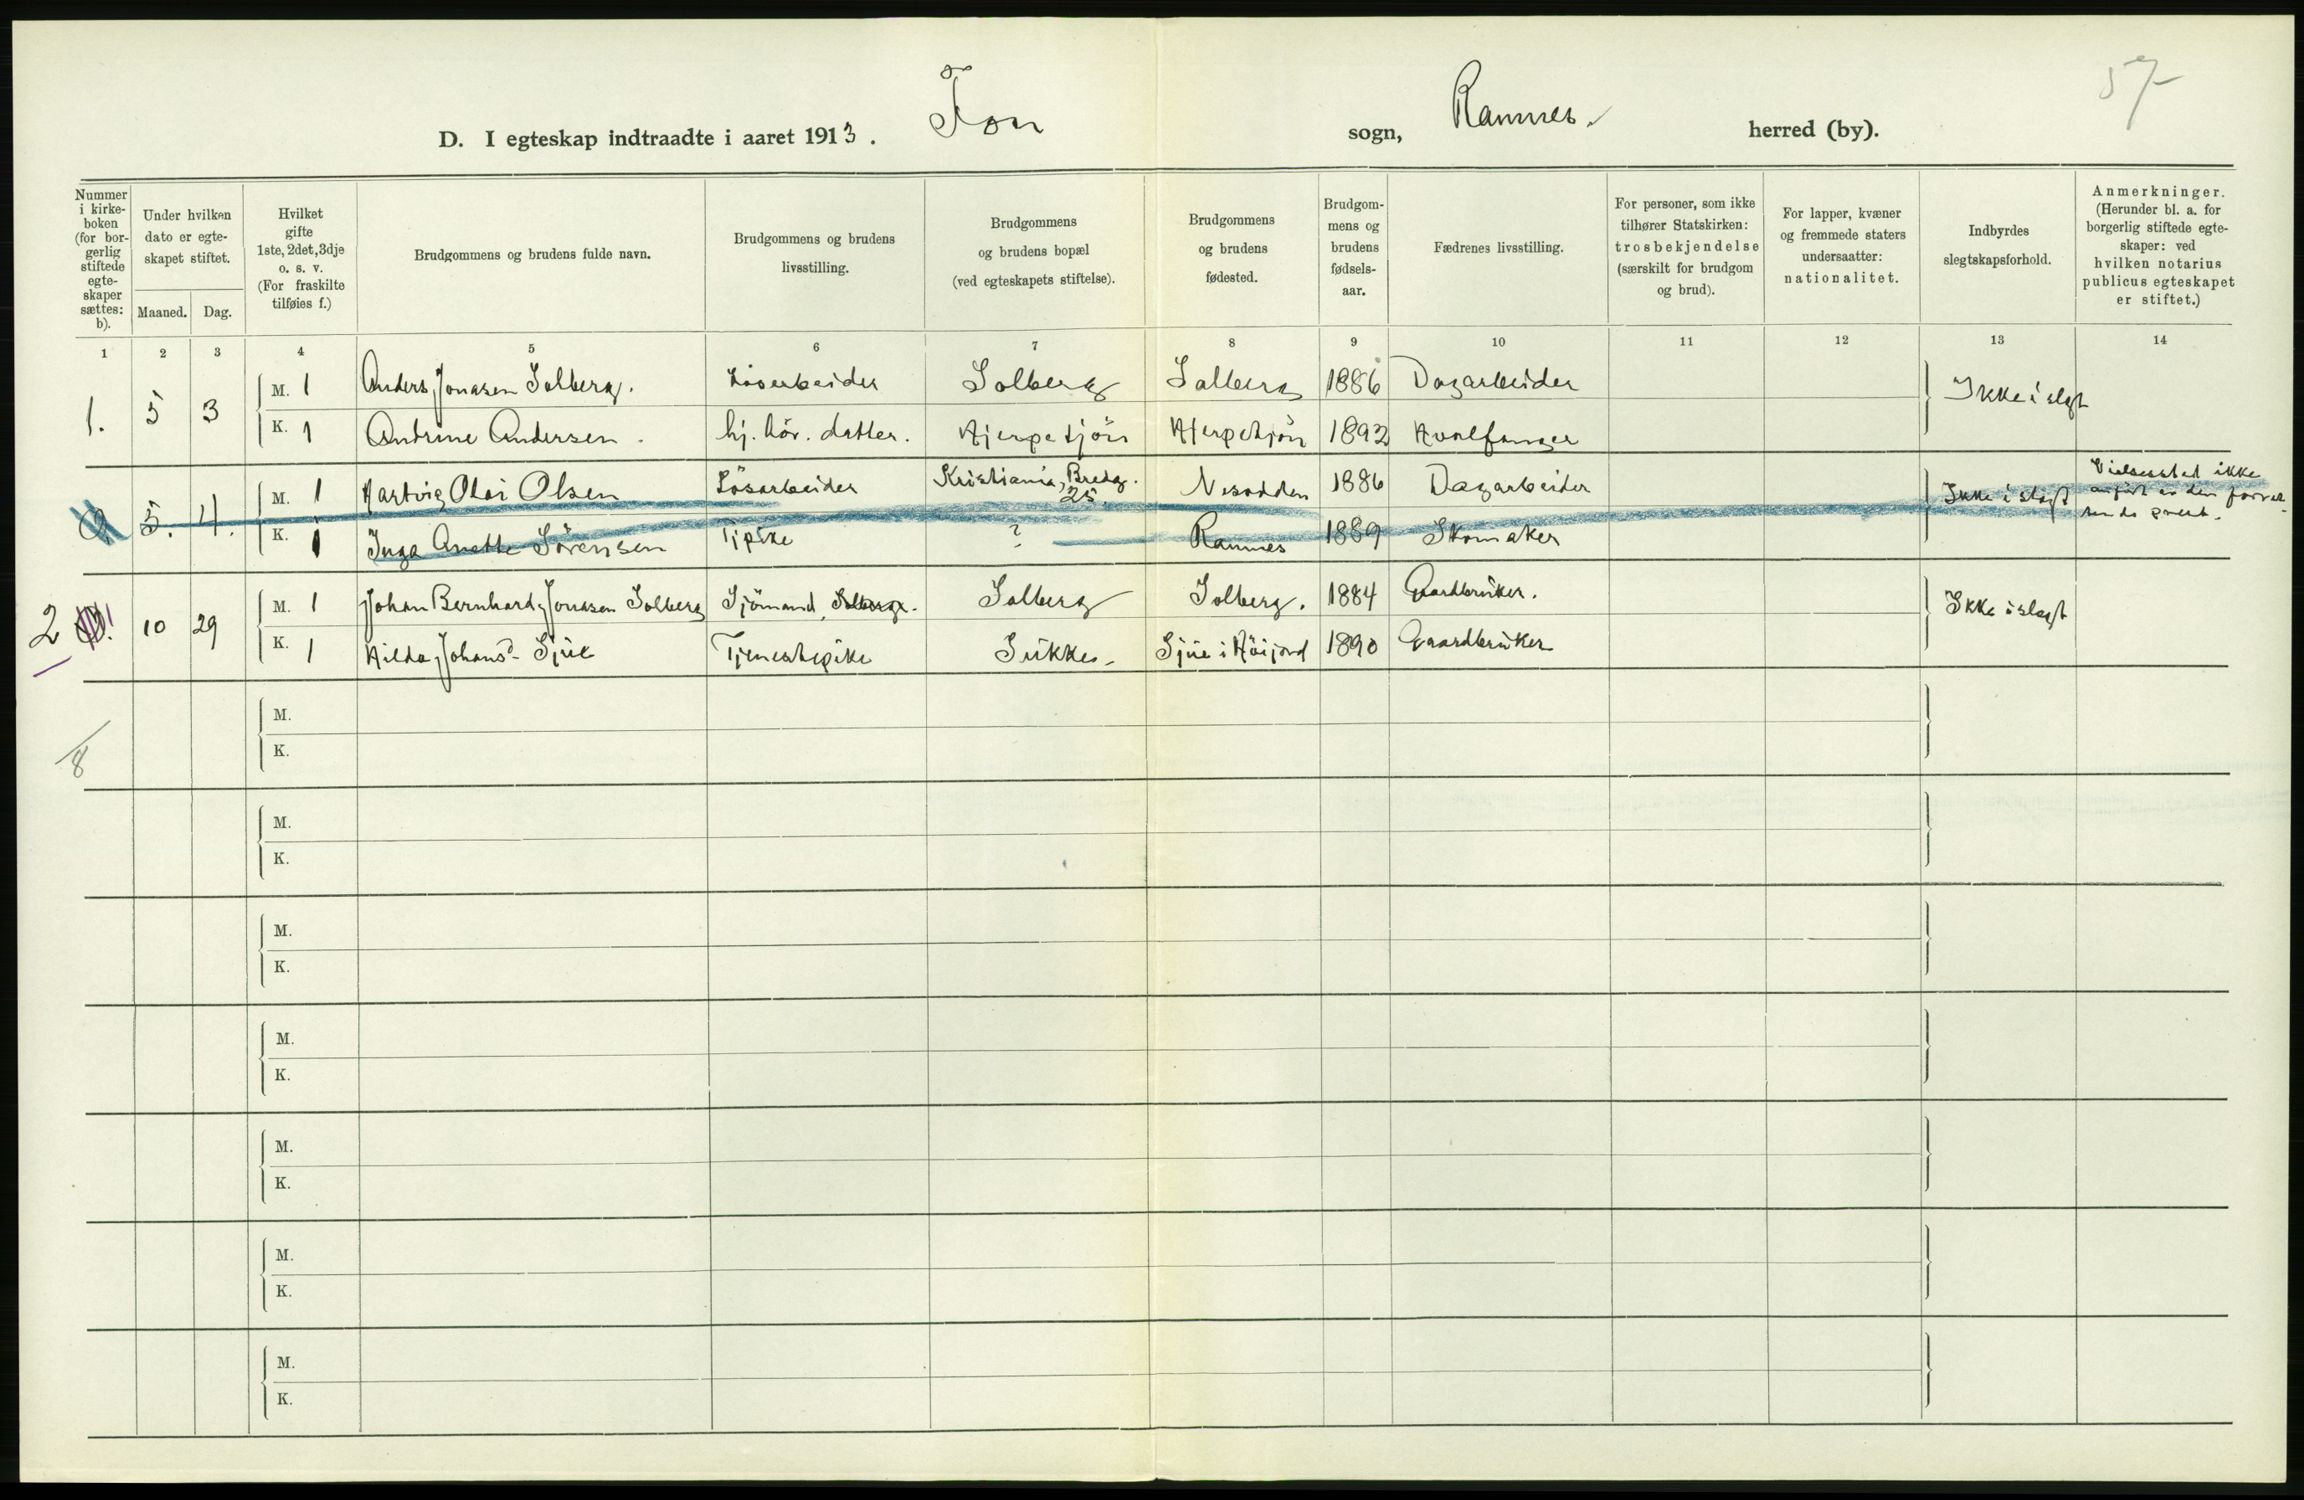 57
D. I egteskap indtraadte i aaret 1913. Fon sogn, Ramnes. herred (by).
Nummer i kirke-boken (for bor-gerlig stiftede egte-skaper sættes: b).
Under hvilken dato er egte-skapet stiftet.
Maaned. Dag.
Hvilket gifte 1ste, 2det, 3dje o. s. v. (For fraskilte tilføies f.)
Brudgommens og brudens fulde navn.
Brudgommens og brudens livsstilling.
Brudgommens og brudens bopæl (ved egteskapets stiftelse).
Brudgommens og brudens fødested.
Brudgom-mens og brudens fødsels-aar.
Fædrenes livsstilling.
For personer, som ikke tilhører Statskirken: trosbekjendelse (særskilt for brudgom og brud).
For lapper, kvæner og fremmede staters undersaatter: nationalitet.
Indbyrdes slegtskapsforhold.
Anmerkninger. (Herunder bl. a. for borgerlig stiftede egte-skaper: ved hvilken notarius publicus egteskapet er stiftet.)
1 2 3 4 5 6 7 8 9 10 11 12 13 14
1. 5 3 M. 1 Anders Jonasen Solberg. Løserbeider Solberg Solberg 1886 Dagarbeider Ikke i slegt
K. 1 Andrine Andersen. hj. hör. datter. Hjerpetjön Hjerpetjön 1892 Hvalfanger
5. 4. M. 1 Hartvig Olai Olsen Lösarbeider Kristiania, Bredg. 25 Nesodden 1886 Dagarbeider Ikke i slegt Vielsessted ikke anfört av den forret-tende prest.
K. 1 Inga Anette Sörensen Tjpike ? Ramnes 1889 Skomaker
2 10 29 M. 1 Johan Bernhard Jonasen Solberg Sjömand, Solberg. Solberg Solberg. 1884 Gaardbruker. Ikke i slegt
K. 1 Hilda Johansd. Sjue Tjenestepike Sukke. Sjue i Höijord 1890 Gaardbruker
8
M.
K.
M.
K.
M.
K.
M.
K.
M.
K.
M.
K.
M.
K.